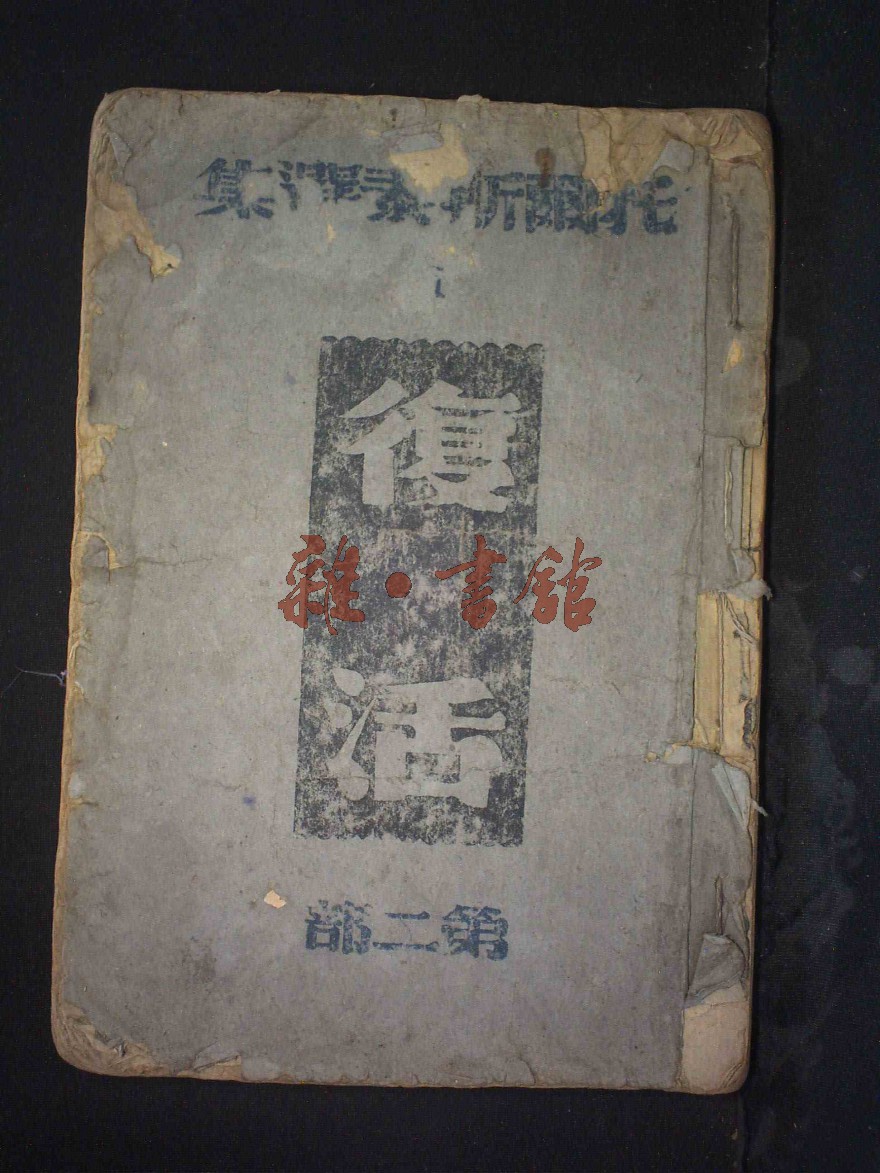 托爾斯泰 集
復
雜•書館
活
第二部